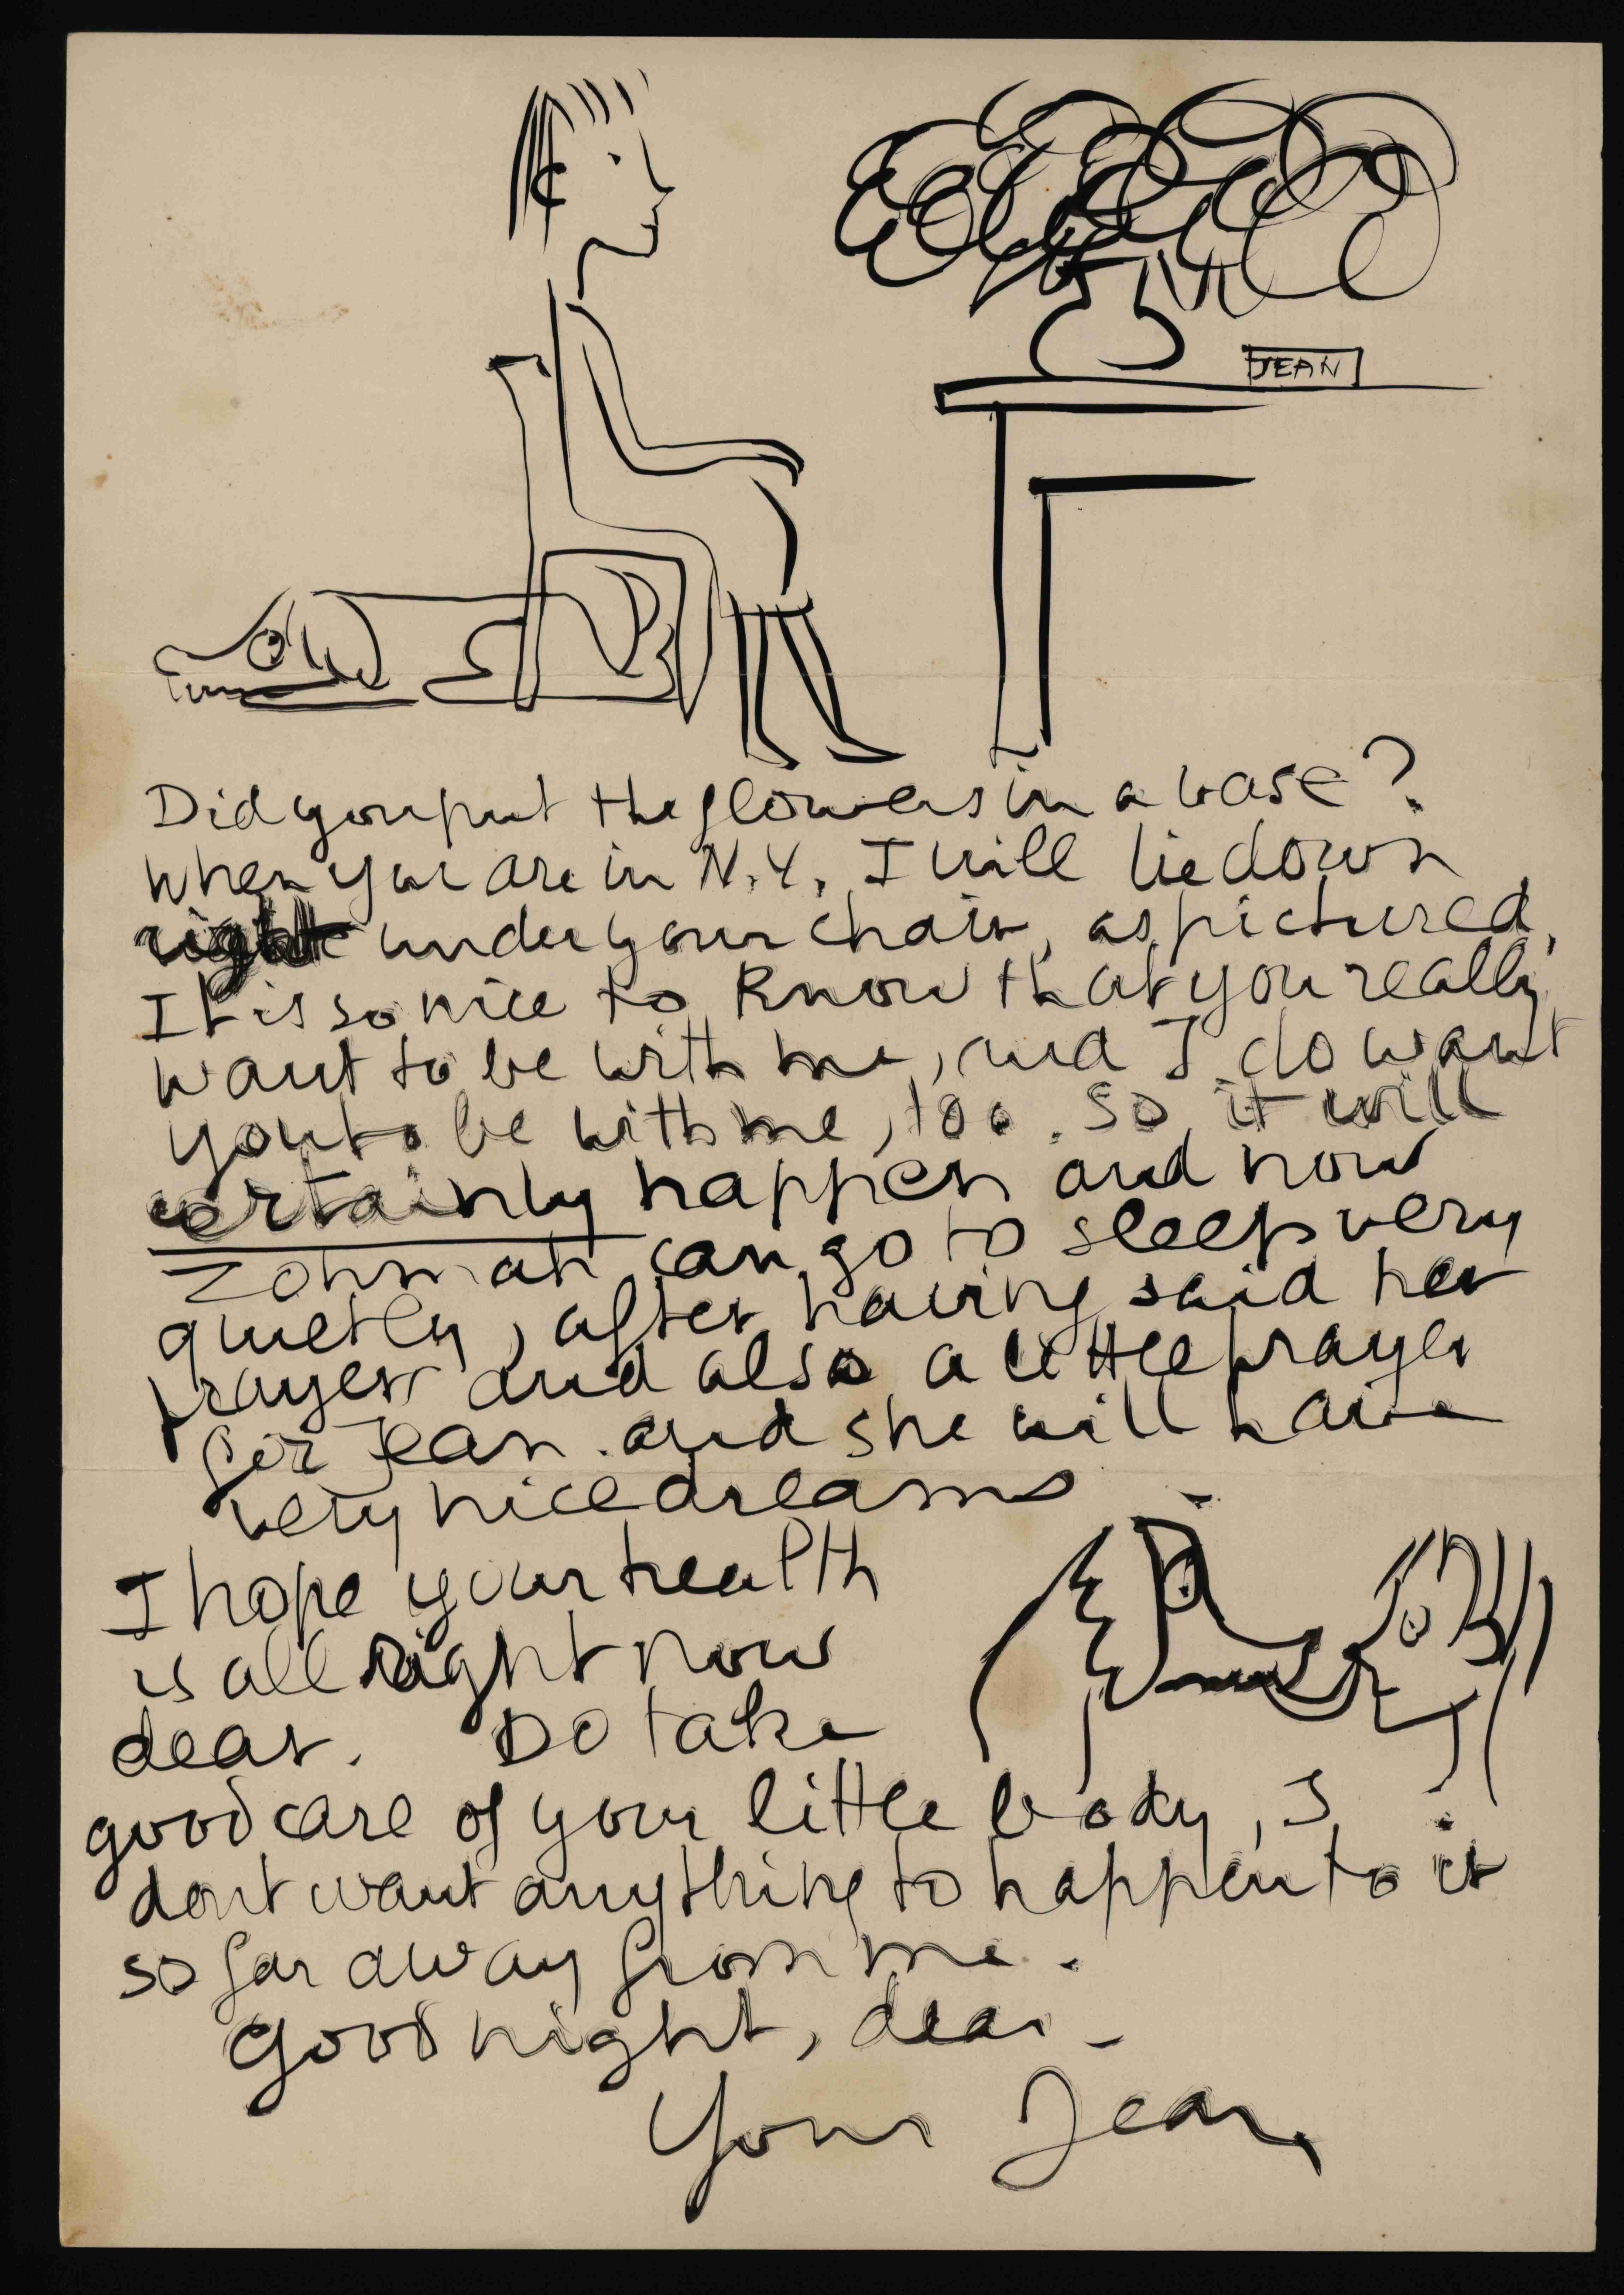 JEAN
Did you put the flowers in a vase?
When you are in N.Y. I will lie down
right under your chair, as pictured.
It is so nice to know that you really
want to be with me, and I do want
you to be with me, too. So it will
certainly happen and now
Zohmah can go to sleep very
quietly, after having said her
prayer and also a little prayer
for Jean. and she will have
very nice dreams
I hope your health
is all right now
dear. Do take
good care of your little body, I
dont want anything to happen to it
so far away from me.
Good night, dear -
Your Jean